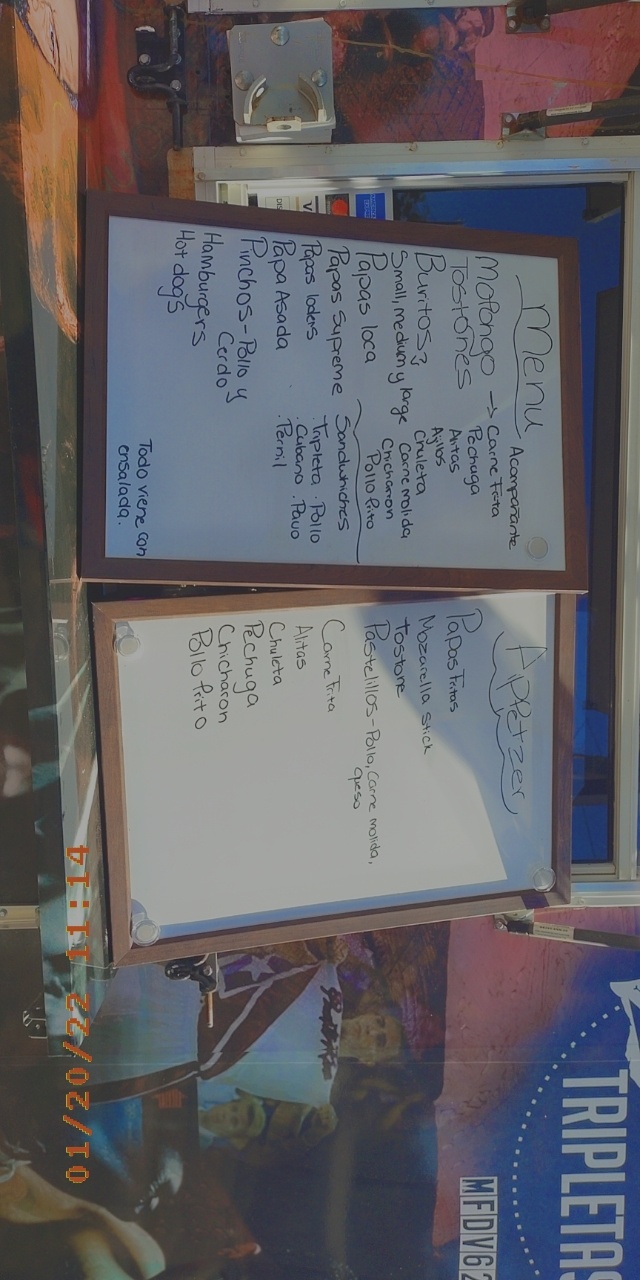 Menu
Acompañante
Mofongo → Carne Frita
Tostones
Pechuga
Alitas
Ajillos
Burritos
Chuleta
Small, medium y large
Carne molida
Chicharon
Pollo Frito
Papas loca
Papas Supreme
Sandwhiches
Papas lodes
. Tripleta . Pollo
Papa Asada
. Cubano . Pavo
. Pernil
Pinchos - Pollo y
Cerdo
Hamburgers
Hot dogs
Todo viene con
ensalada.
Appetzer
Papas Fritas
Mozarella Stick
Tostone
Pastelillos - Pollo, Carne molida,
queso
Carne Frita
Alitas
Chuleta
Pechuga
Chicharon
Pollo Frito
TRIPLETAS
MFDV62
01/20/22 11:14